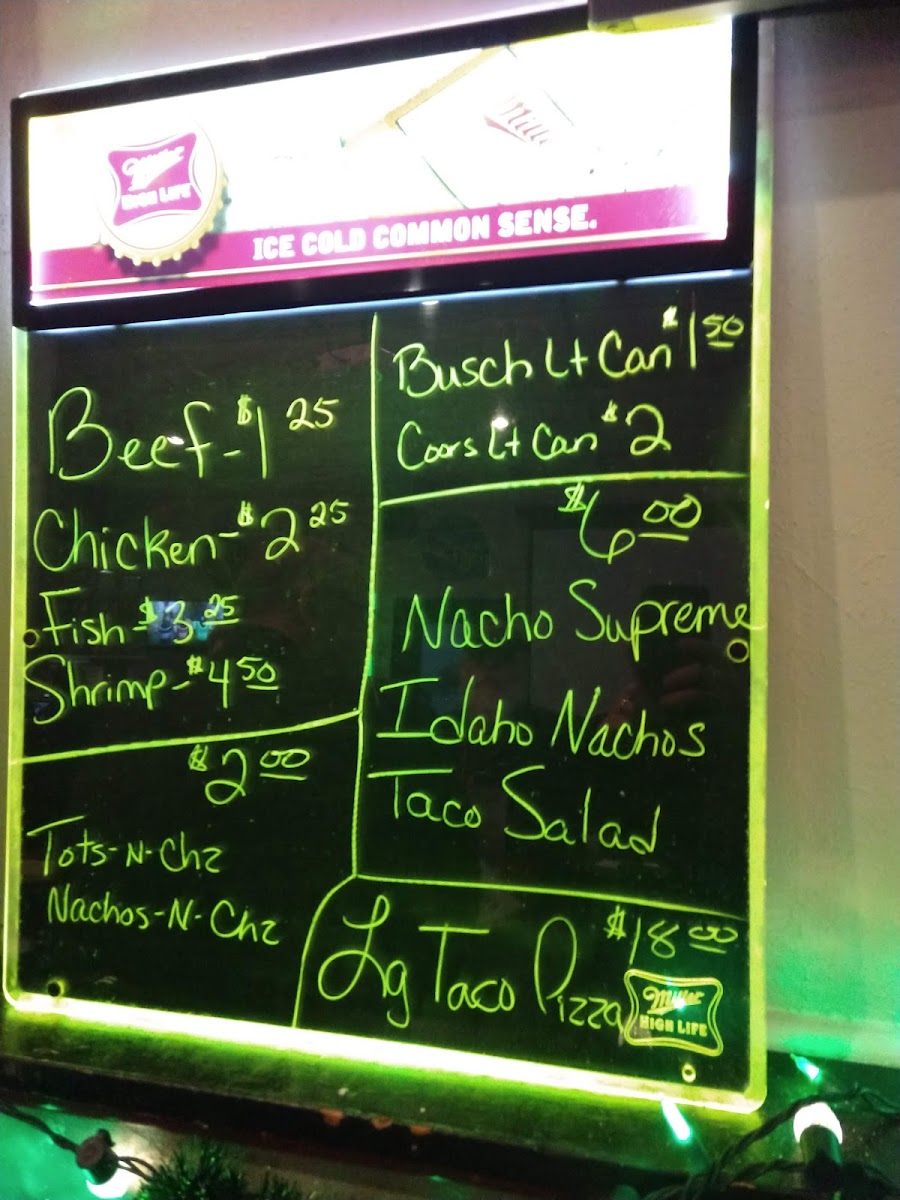 Miller
HIGH LIFE
Miller
ICE COLD COMMON SENSE.
Beef - $1 25
Chicken - $2 25
Fish - $3 25
Shrimp - $4 50
$2 00
Tots-N-Chz
Nachos-N-Chz
Busch Lt Can $1 50
Coors Lt Can $2
$6 00
Nacho Supreme
Idaho Nachos
Taco Salad
$18 00
Lg Taco Pizza
Miller
HIGH LIFE